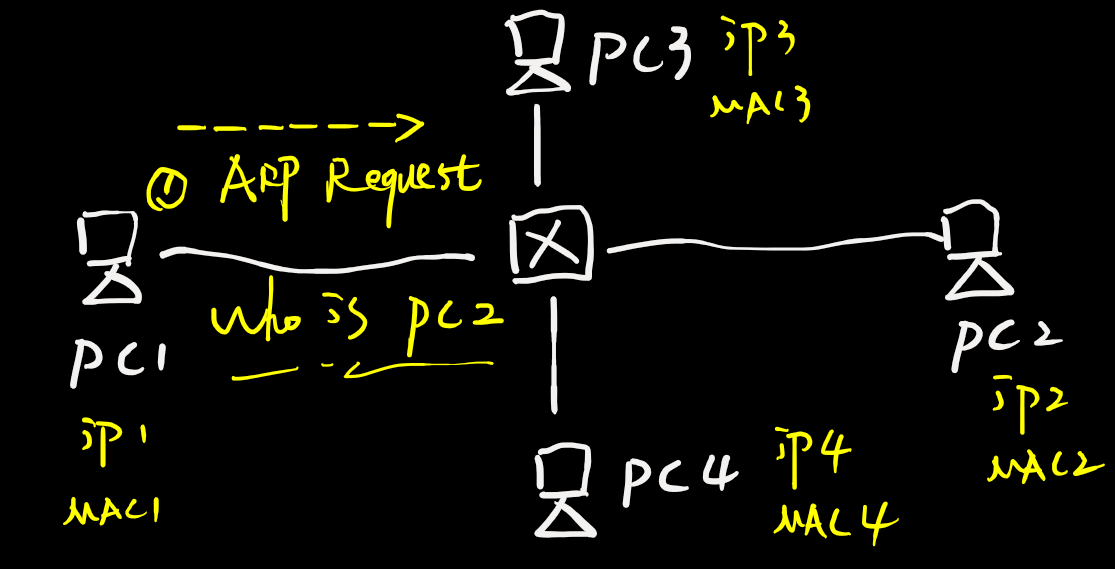 PC3
ip3
MAC3
① ARP Request
who is PC2
PC1
ip1
MAC1
PC2
ip2
MAC2
PC4
ip4
MAC4